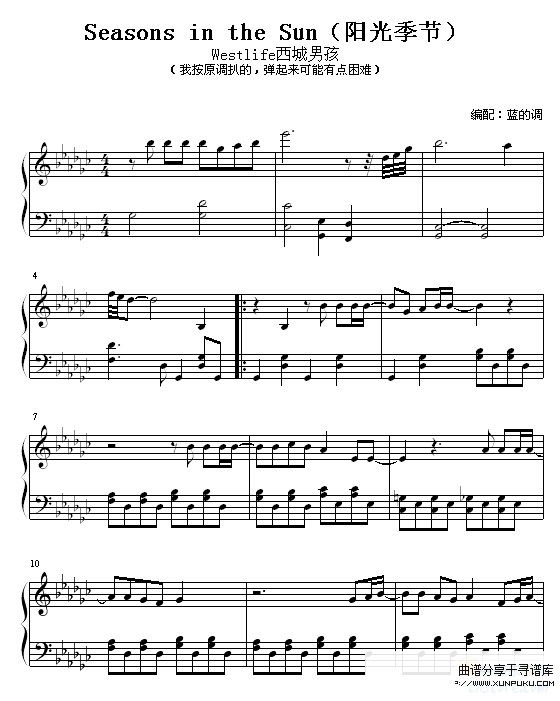 Seasons in the Sun（阳光季节）
Westlife西城男孩
（我按原调扒的，弹起来可能有点困难）
编配：蓝的调
4
4
4
4
4
7
10
曲谱分享于寻谱库
WWW.XUNPUKU.COM